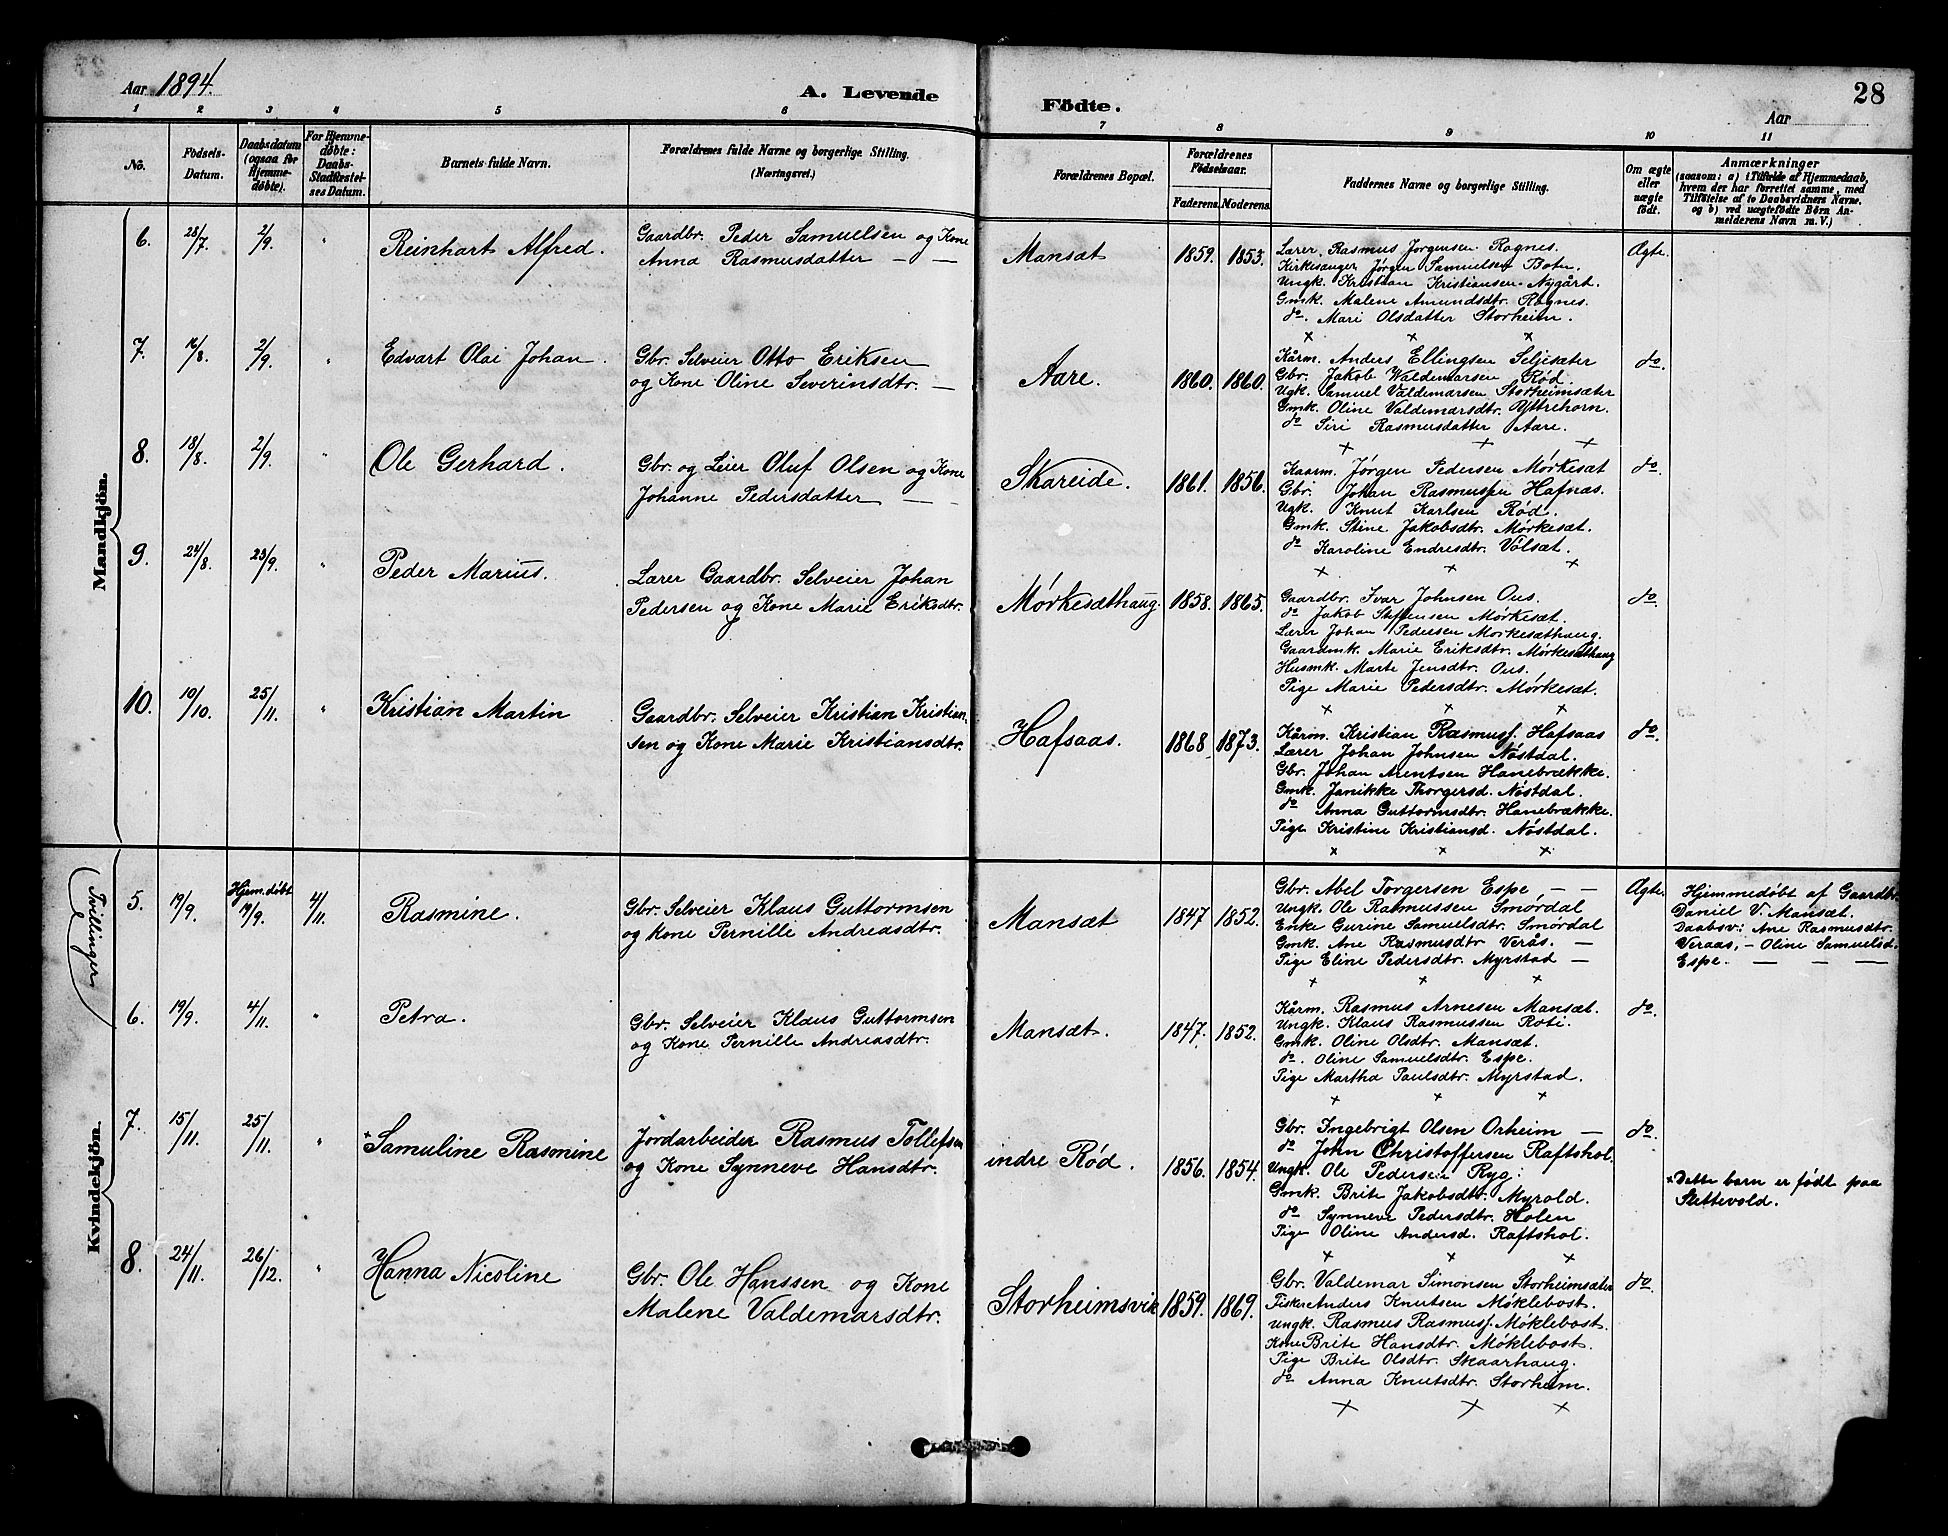 Aar 1894.
A. Levende
Födte.
28
Aar
1 2 3 4 5 6 7 8 9 10 11
No.
Födsels-
Datum.
Daabsdatum
(ogsaa for
Hjemme-
døbte).
For Hjemme-
døbte:
Daabs-
Stadfæstel-
ses Datum.
Barnets fulde Navn.
Forældrenes fulde Navne og borgerlige Stilling.
(Næringsvei.)
Forældrenes Bopæl.
Forældrenes
Födselsaar.
Faderens. Moderens.
Faddernes Navne og borgerlige Stilling.
Om ægte
eller
uægte
født.
Anmærkninger
(saasom: a) i Tilfælde af Hjemmedaab,
hvem der har forrettet samme, med
Tilføielse af to Daabsvidners Navne,
og b) ved uægtefödte Börn An-
melderens Navn m. V.)
Mandkjön.
6. 28/7 2/9 " Reinhart Alfred.
Gaardbr. Peder Samuelsen og Kone
Anna Rasmusdatter — —
Mansæt 1859. 1853.
Lærer. Rasmus Jørgensen Ragnes.
Kirkesanger Jørgen Samuelsen Botn.
Ungk. Kristian Kristiansen Nygårt.
Gmk. Malene Amundsdtr. Ragnes.
do. Mari Olsdatter Storheim.
x x x
Ægte.
7. 16/8 2/9 " Edvart Olai Johan.
Gbr. Selveier Otto Eriksen
og Kone Oline Severinsdtr. —
Aare. 1860. 1860.
Kårm. Anders Ellingsen Seljesæter
Gbr. Jakob Waldemarsen Rød.
Ugk. Samuel Valdemarsen Storheimsæter
Gmk. Oline Valdemarsdtr. Yttrehorn.
do Siri Rasmusdatter Aare.
x x x
do.
8. 18/8 2/9 " Ole Gerhard.
Gbr. og Leier Oluf Olsen og Kone
Johanne Pedersdatter — —
Skareide. 1861. 1856.
Kaarm. Jørgen Pedersen Mørkesæt
Gbr. Johan Rasmussen Hafnas.
Ugk. Knut Karlsen Rød.
Gmk. Stine Jakobsdtr. Mørkesæt.
do Karoline Endresdtr. Vólsæt.
x x x
do.
9. 24/8 23/9 " Peder Marius.
Lærer Gaardbr. Selveier Johan
Pedersen og Kone Marie Eriksdtr.
Mørkesæthaug. 1858. 1865.
Gaardbr. Ivar Johnsen Ous.
do Jakob Steffensen Mørkesæt.
Lærer Johan Pedersen Mørkesæthaug.
Gaardmk. Marie Eriksdtr. Mørkesæthaug
Husmk. Marte Jensdtr. Ous.
Pige Marie Pedersdtr. Mørkesæt.
x x x
do.
10. 19/10 25/11. " Kristian Martin
Gaardbr. Selveier Kristian Kristian-
sen og Kone Marie Kristiansdtr.
Hafsaas. 1868. 1873.
Kårm. Kristian Rasmuss. Hafsaas
Lærer Johan Johnsen Nóstdal.
Gbr. Johan Arentsen Hanebrække.
Gmk. Janikke Thorgersd. Nóstdal.
do Anna Guttormsdtr. Hanebrække.
Pige Kristine Kristiansd. Nóstdal.
x x x
do.
Kvindekjön.
Tvillinger
5. 19/9. Hjem.døbt 19/9. 4/11. Rasmine.
Gbr. Selveier Klaus Guttormsen
og Kone Pernille Andreasdtr.
Mansæt 1847 1852.
Gbr. Abel Torgersen Espe — —
Ungk. Ole Rasmussen Smórdal
Enke Gurine Samuelsdtr. Smórdal
Gmk. Ane Rasmusdtr Verås. —
Pige Eline Pedersdtr. Myrstad —
x x x
Ægte.
Hjemmedøbt af Gaardbr.
Daniel V. Mansæt.
Daabsv: Ane Rasmusdtr.
Veraas, — Oline Samuelsd.
Espe. — — —
6. 19/9. 4/11. " Petra.
Gbr. Selveier Klaus Guttormsen
og Kone Pernille Andreasdtr.
Mansæt. 1847. 1852.
Kårm. Rasmus Arnesen Mansæt.
Ungk. Klaus Rasmussen Roti.
Gmk. Oline Olsdtr. Mansæt.
do. Oline Samuelsdtr. Espe.
Pige Martha Paulsdtr. Myrstad.
x x x
do.
7. 15/11. 25/11. " x Samuline Rasmine
Jordarbeider Rasmus Tollefsen
og Kone Synneve Hansdtr.
indre Rød. 1856. 1854.
Gbr. Ingebrigt Olsen Orheim —
do John Christoffersen Raftshol.
Ungk. Ole Pedersen Ryg.
Gmk. Brite Jakobsdtr. Myrold.
do Synneve Pedersdtr. Holen
Pige Oline Andersd. Raftshol.
x x x
do.
x Dette barn er født paa
Slettevold.
8. 24/11. 26/12. " Hanna Nicoline
Gbr. Ole Hanssen og Kone
Malene Valdemarsdtr.
Storheimsvik 1859. 1869.
Gbr. Valdemar Simonsen Storheimsæter
Fisker Anders Knutsen Móklebost.
Ungk. Rasmus Rasmuss. Móklebost.
Kone Brite Hansdtr. Móklebost.
Pige Brite Olsdtr. Skaarhaug.
do Anna Knutsdtr. Storheim.
x x x
do.